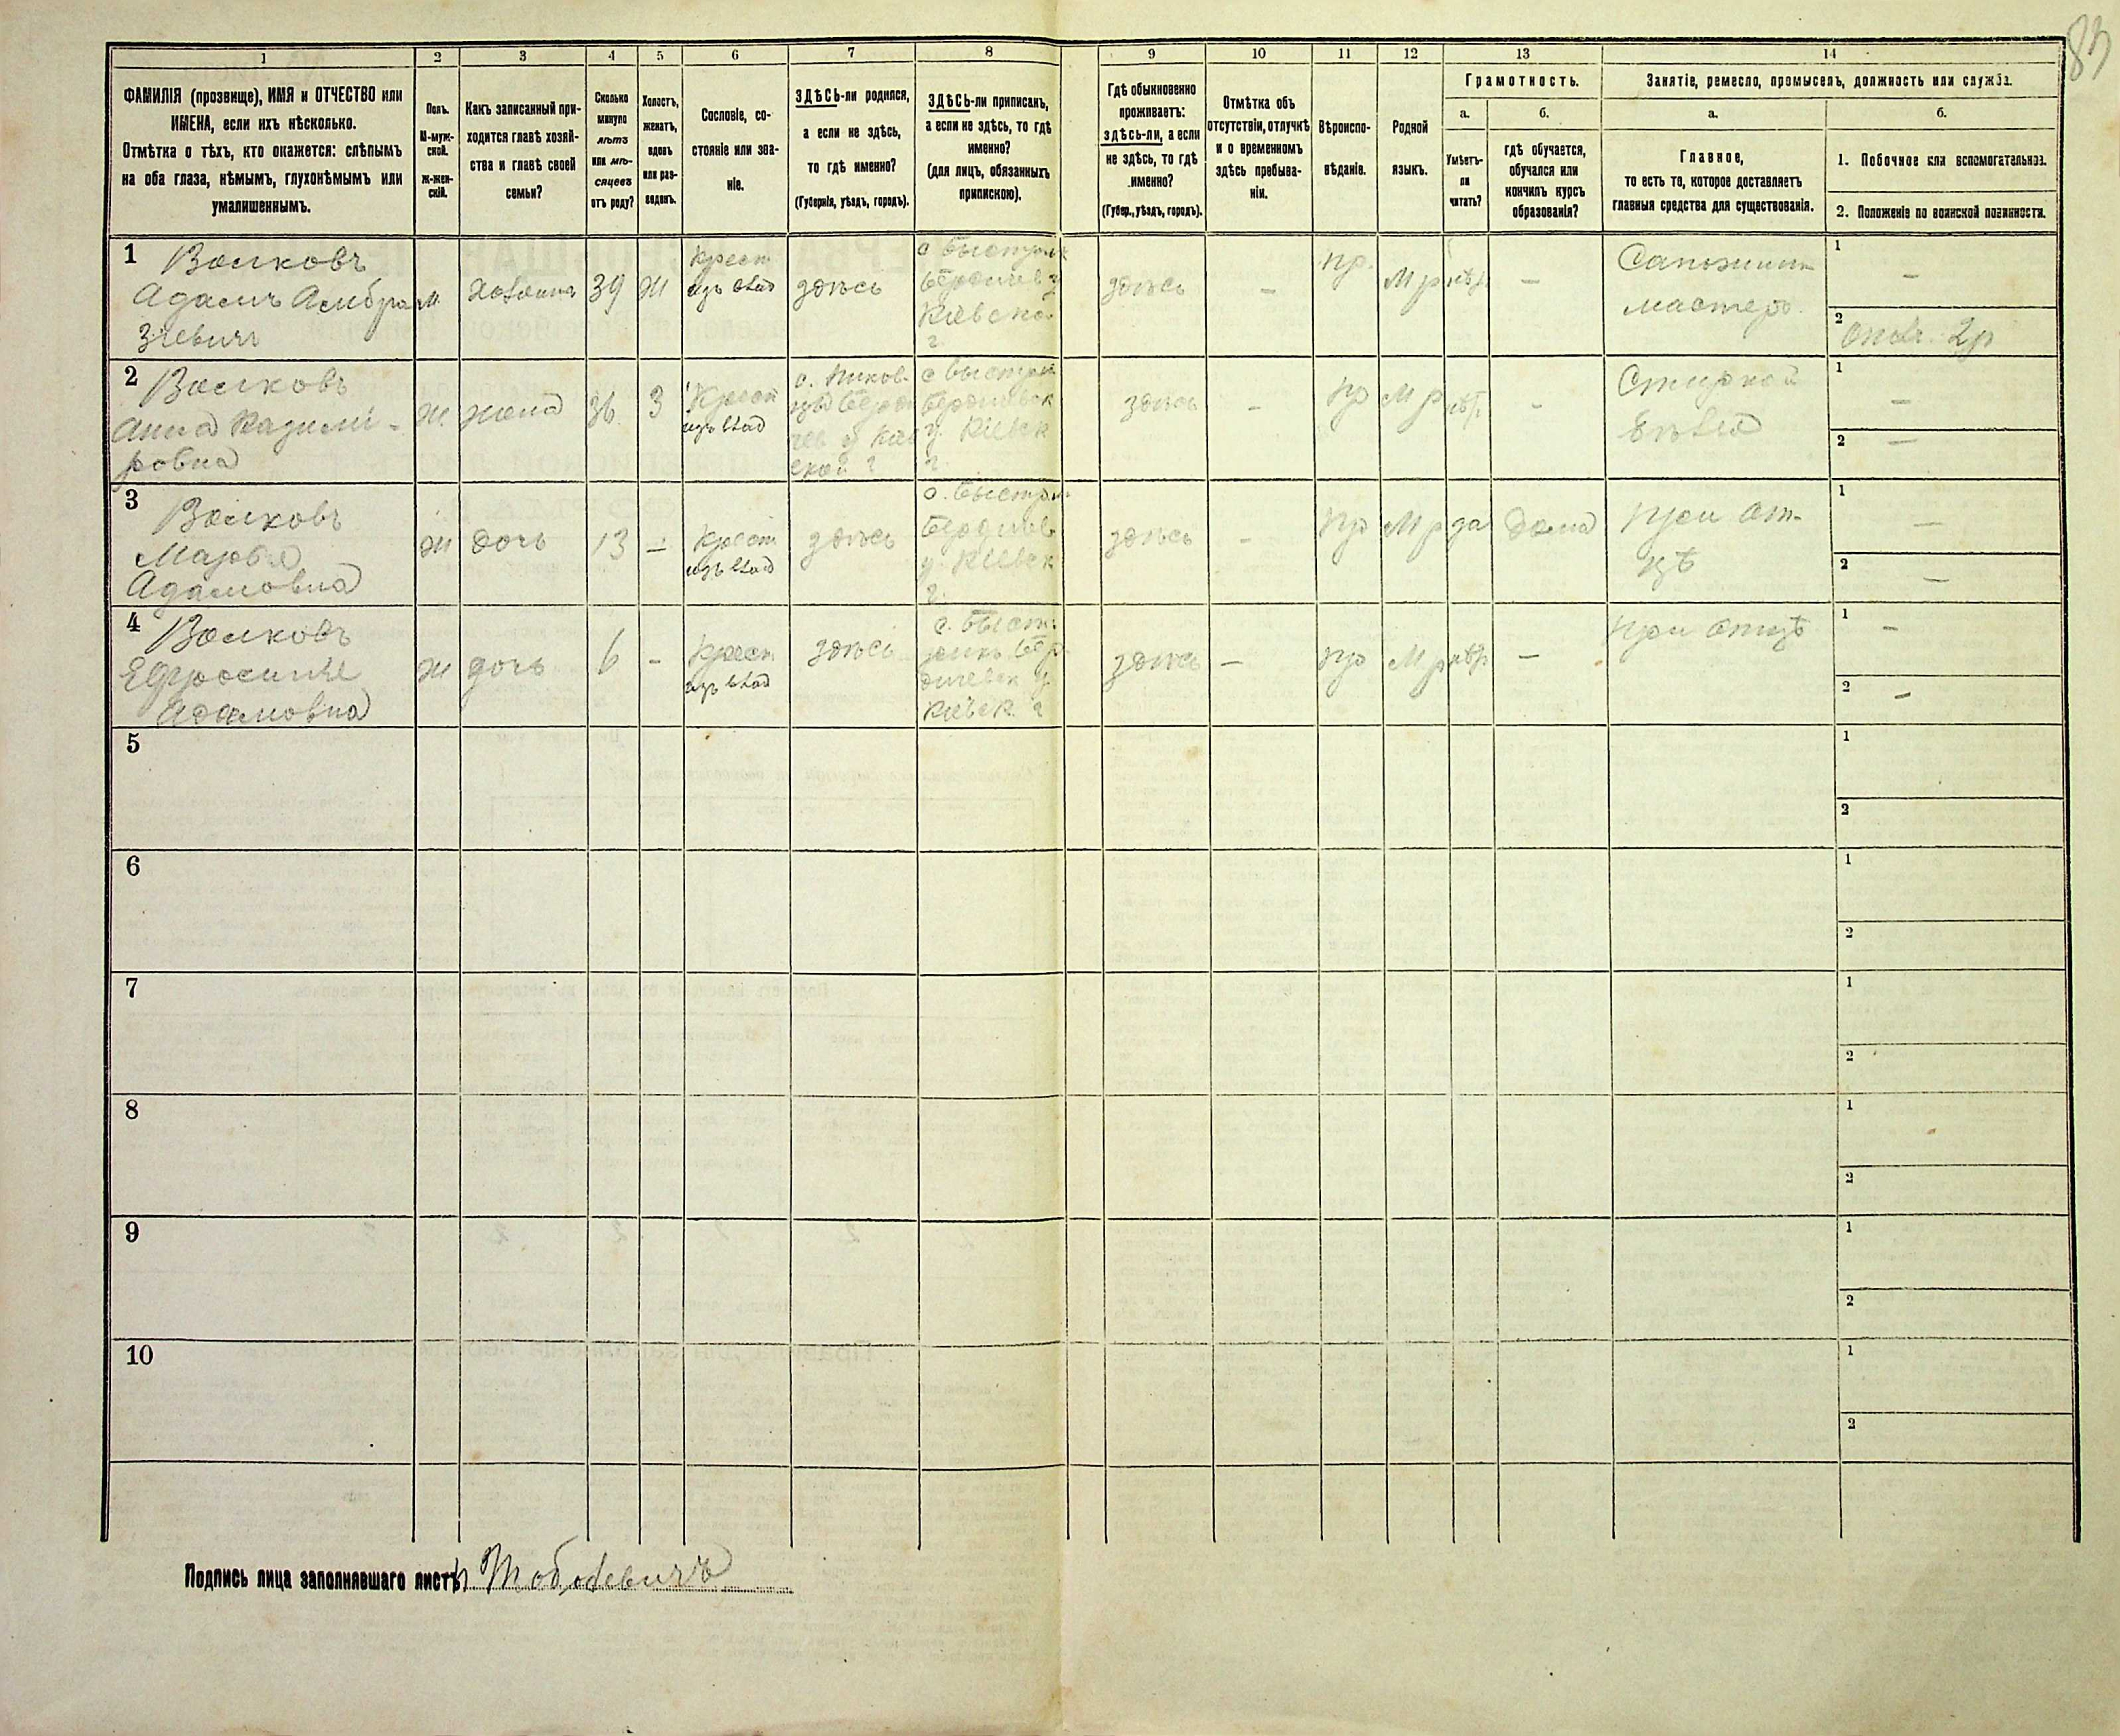 83
1
2
3
4
5
6
7
8
9
10
11
12
13
14
ФАМИЛІЯ (прозвище), ИМЯ и ОТЧЕСТВО или
ИМЕНА, если ихъ нѣсколько.
Отмѣтка о тѣхъ, кто окажется: слѣпымъ
на оба глаза, нѣмымъ, глухонѣмымъ или
умалишеннымъ.
Полъ.
М-муж-
ской.
Ж-жен-
скій.
Какъ записанный при-
ходится главѣ хозяй-
ства и главѣ своей
семьи?
Сколько
минуло
лѣтъ
или мѣ-
сяцевъ
отъ роду?
Холостъ,
женатъ,
вдовъ
или раз-
веденъ.
Сословіе, со-
стояніе или зва-
ніе.
ЗДѢСЬ-ли родился,
а если не здѣсь,
то гдѣ именно?
(Губернія, уѣздъ, городъ).
ЗДѢСЬ-ли приписанъ,
а если не здѣсь, то гдѣ
именно?
(для лицъ, обязанныхъ
припискою).
Гдѣ обыкновенно
проживаетъ:
здѣсь-ли, а если
не здѣсь, то гдѣ
именно?
(Губер., уѣздъ, городъ).
Отмѣтка объ
отсутствіи, отлучкѣ
и о временномъ
здѣсь пребыва-
ніи.
Вѣроиспо-
вѣданіе.
Родной
языкъ.
Грамотность.
а.
Умѣетъ-
ли
читать?
б.
гдѣ обучается,
обучался или
кончилъ курсъ
образованія?
Занятіе, ремесло, промыселъ, должность или служба.
а.
Главное,
то есть то, которое доставляетъ
главныя средства для существованія.
б.
1. Побочное или вспомогательное.
2. Положеніе по воинской повинности.
1
Волковъ
Адамъ Амбро
зіевичъ
М.
Хозяинъ
39
Ж
Крест
изъ влад
здѣсь
с Быстрик
Бердичев у
Кіевско
г.
здѣсь
–
пр.
Мр
нѣт
–
Сапожнич
мастеръ.
1
–
2
2р
2
Волковъ
Анна Казимі-
ровна
Ж.
жена
36
З
Крест
изъ влад
с Быстрик
Бердичевск
у. Кіевск
г.
здѣсь
–
пр
Мр
нѣт
–
Стиркой
бѣлья
1
–
2 –
3
Волковъ
Марья
Адамовна
Ж
дочь
13
–
Крест
изъ влад
здѣсь
с. Быстрик
Бердичев
у. Кіевск
г.
здѣсь
–
пр
Мр
да
дома
при от-
цѣ
1
–
2
–
4
Волковъ
Ефросинія
Адамовна
Ж
дочь
6
–
Крест
изъ влад
здѣсь
с. Быст-
рикъ Бер
дичевск у.
Кіевск г
здѣсь
–
пр
Мр
нѣт
–
при отцѣ
1
–
2
–
5
1
2
6
1
2
7
1
2
8
1
2
9
1
2
10
1
2
Подпись лица заполнявшаго листъ